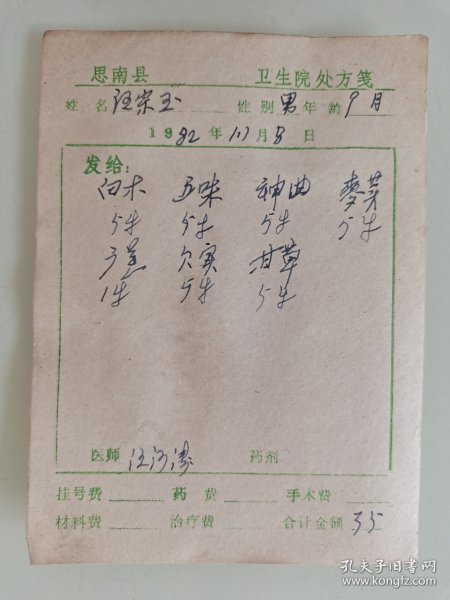 思南县 卫生院处方笺
姓名 汪宗玉 性别 男 年龄 9月
1982年10月8日
发给:
白术 五味 神曲 麦芽
5钱 5钱 5钱 5钱
欠实 甘草
1钱 5钱 5钱
医师 汪 药剂
挂号费 药费 手术费
材料费 治疗费 合计金额 35
孔夫子旧书网
www.kongfz.com